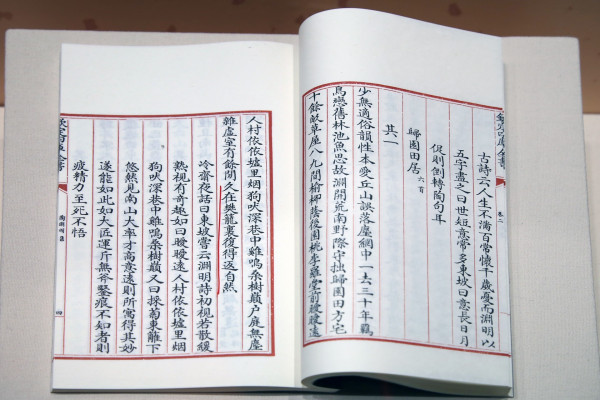 欽定四庫全書
卷二
古詩云人生不滿百常懷千歲憂而淵明以
五字盡之曰世短意常多東坡曰意長日月
促則倒轉陶句耳
歸園田居 六首
其一
少無適俗韻性本愛丘山誤落塵網中一去三十年羈
鳥戀舊林池魚思故淵開荒南野際守拙歸園田方宅
十餘畝草屋八九間榆柳蔭後園桃李羅堂前曖曖遠
人村依依墟里烟狗吠深巷中雞鳴桑樹巔戶庭無塵
雜虛室有餘閒久在樊籠裏復得返自然
冷齋夜話曰東坡嘗云淵明詩初視若散緩
熟視有奇趣如曰曖曖遠人村依依墟里烟
狗吠深巷中雞鳴桑樹巔又曰採菊東籬下
悠然見南山大率才高意遠則所寓得其妙
遂能如此如大匠運斤無斧鑿痕不知者則
疲精力至死不悟
欽定四庫全書
陶淵明集
四